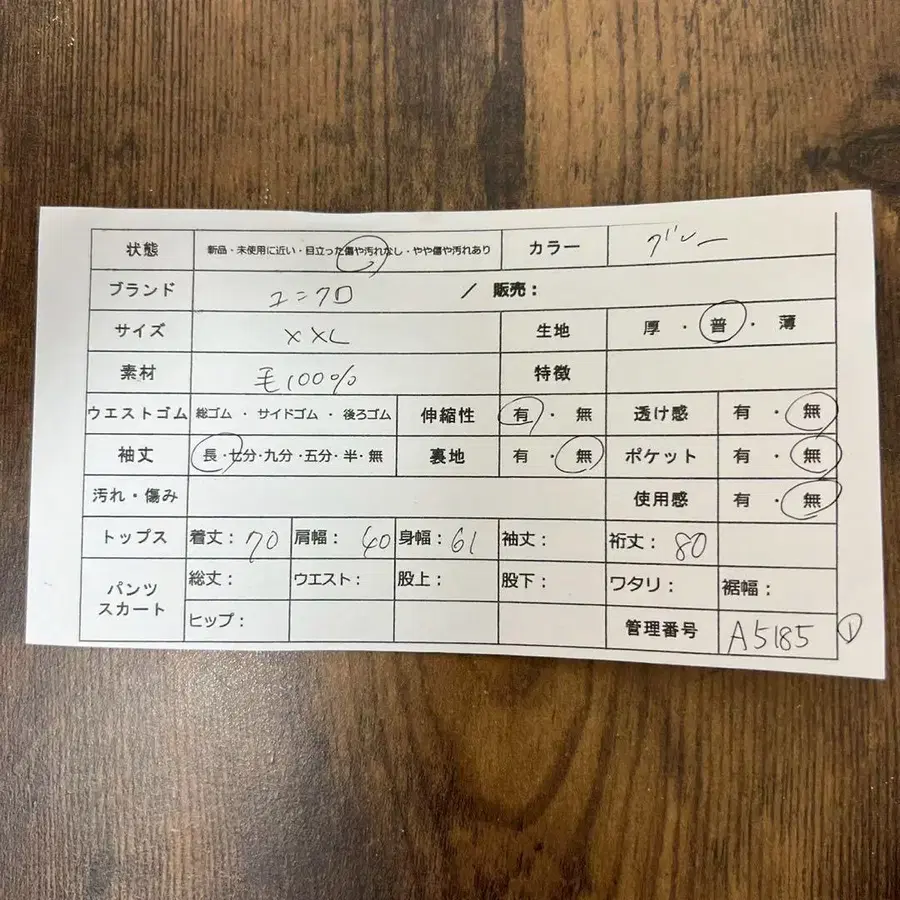 状態 新品・未使用に近い・目立った傷や汚れなし・やや傷や汚れあり カラー グレー
ブランド ユニクロ / 販売：
サイズ XXL 生地 厚・普・薄
素材 毛100% 特徴
ウエストゴム 総ゴム・サイドゴム・後ろゴム 伸縮性 有・無 透け感 有・無
袖丈 長・七分・九分・五分・半・無 裏地 有・無 ポケット 有・無
汚れ・傷み 使用感 有・無
トップス 着丈：70 肩幅：60 身幅：61 袖丈： 裄丈：80
パンツ スカート 総丈： ウエスト： 股上： 股下： ワタリ： 裾幅：
ヒップ： 管理番号 A5185 ①